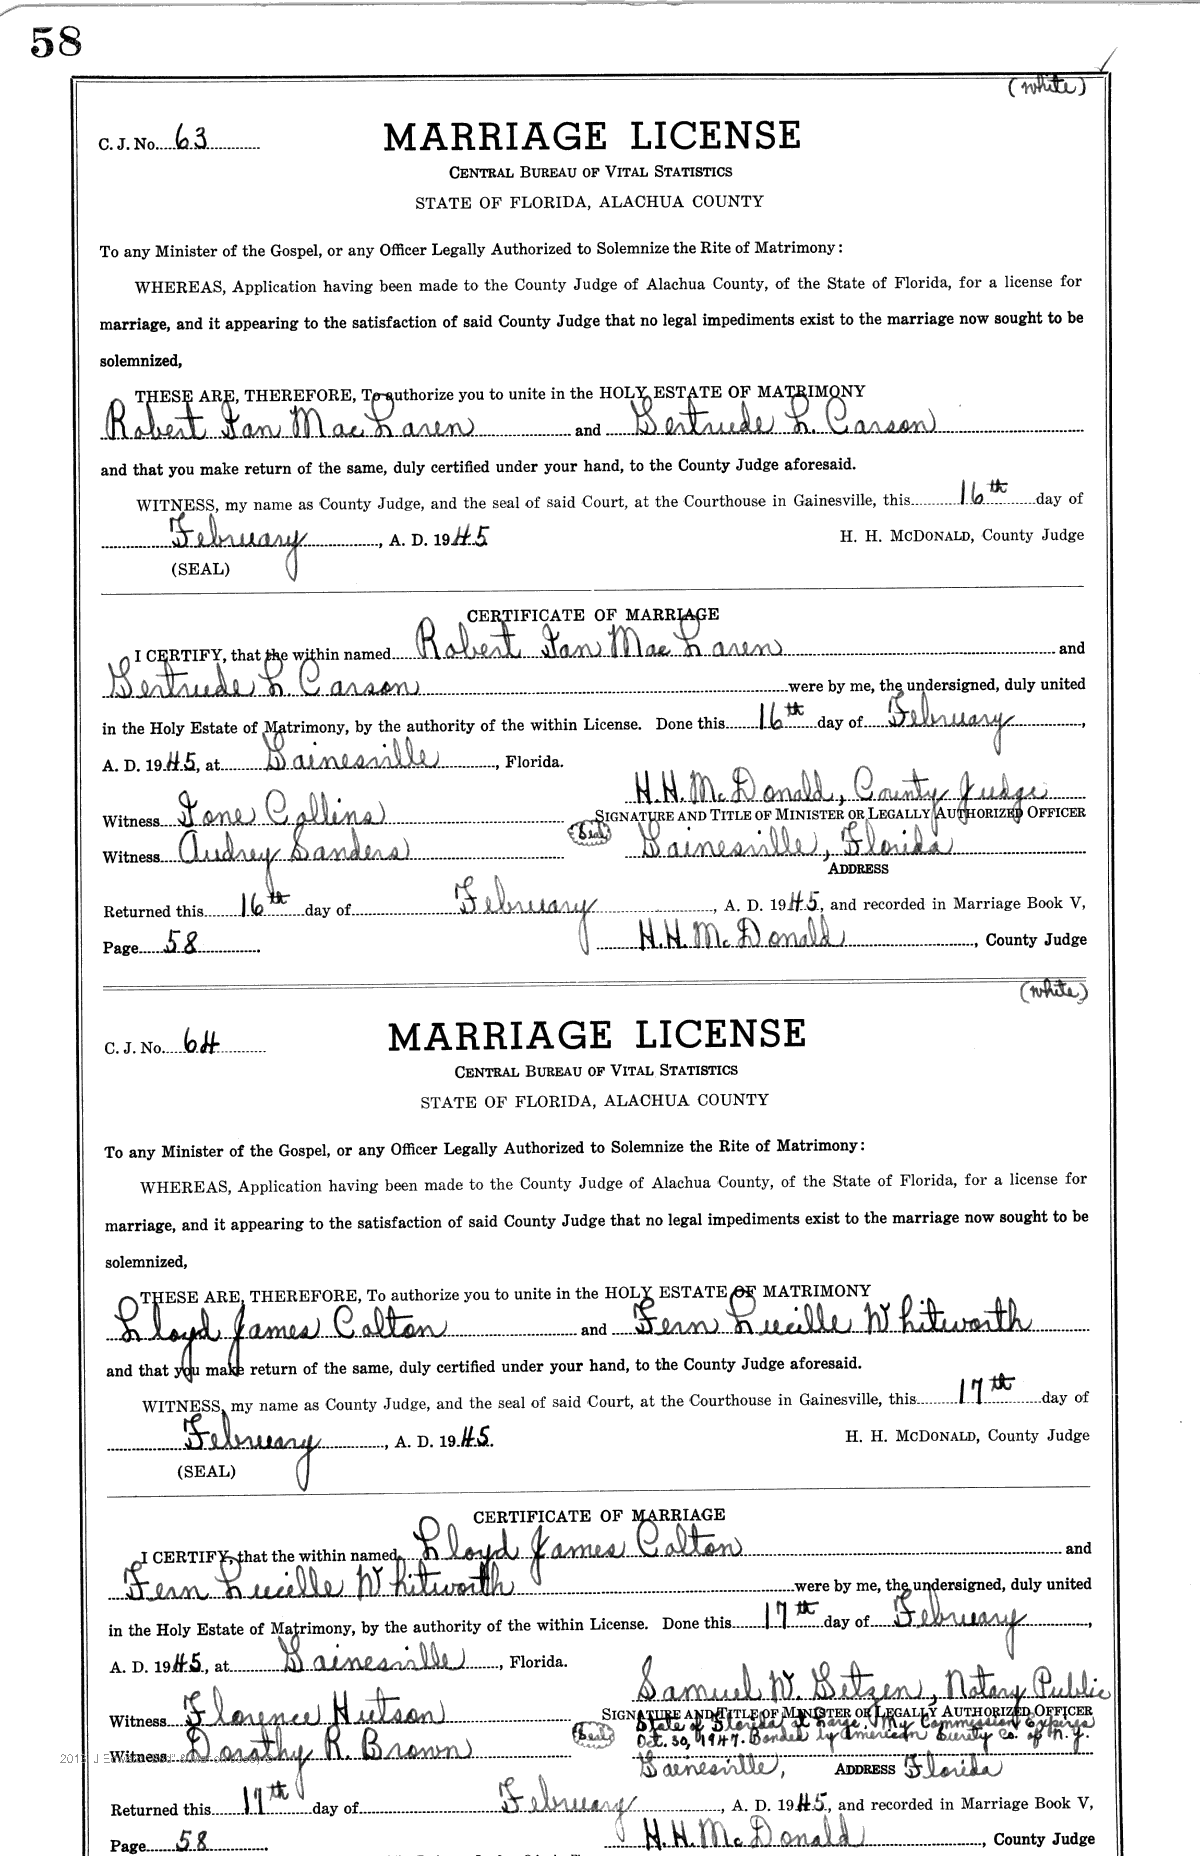 58
(white)
C. J. No. 63
MARRIAGE LICENSE
CENTRAL BUREAU OF VITAL STATISTICS
STATE OF FLORIDA, ALACHUA COUNTY
To any Minister of the Gospel, or any Officer Legally Authorized to Solemnize the Rite of Matrimony:
WHEREAS, Application having been made to the County Judge of Alachua County, of the State of Florida, for a license for
marriage, and it appearing to the satisfaction of said County Judge that no legal impediments exist to the marriage now sought to be
solemnized,
THESE ARE, THEREFORE, To authorize you to unite in the HOLY ESTATE OF MATRIMONY
Robert Ian MacLaren and Gertrude L. Carson
and that you make return of the same, duly certified under your hand, to the County Judge aforesaid.
WITNESS, my name as County Judge, and the seal of said Court, at the Courthouse in Gainesville, this 16th day of
February, A. D. 1945 H. H. McDONALD, County Judge
(SEAL)
CERTIFICATE OF MARRIAGE
I CERTIFY, that the within named Robert Ian MacLaren and
Gertrude L. Carson were by me, the undersigned, duly united
in the Holy Estate of Matrimony, by the authority of the within License. Done this 16th day of February,
A. D. 1945, at Gainesville, Florida.
H. H. McDonald, County Judge
Witness Ione Collins SIGNATURE AND TITLE OF MINISTER OR LEGALLY AUTHORIZED OFFICER
Witness Audrey Sanders (Seal) Gainesville, Florida
ADDRESS
Returned this 16th day of February, A. D. 1945, and recorded in Marriage Book V,
Page 58 H. H. McDonald, County Judge
(white)
C. J. No. 64
MARRIAGE LICENSE
CENTRAL BUREAU OF VITAL STATISTICS
STATE OF FLORIDA, ALACHUA COUNTY
To any Minister of the Gospel, or any Officer Legally Authorized to Solemnize the Rite of Matrimony:
WHEREAS, Application having been made to the County Judge of Alachua County, of the State of Florida, for a license for
marriage, and it appearing to the satisfaction of said County Judge that no legal impediments exist to the marriage now sought to be
solemnized,
THESE ARE, THEREFORE, To authorize you to unite in the HOLY ESTATE OF MATRIMONY
Lloyd James Colton and Fern Lucille Whitworth
and that you make return of the same, duly certified under your hand, to the County Judge aforesaid.
WITNESS, my name as County Judge, and the seal of said Court, at the Courthouse in Gainesville, this 17th day of
February, A. D. 1945. H. H. McDONALD, County Judge
(SEAL)
CERTIFICATE OF MARRIAGE
I CERTIFY, that the within named Lloyd James Colton and
Fern Lucille Whitworth were by me, the undersigned, duly united
in the Holy Estate of Matrimony, by the authority of the within License. Done this 17th day of February,
A. D. 1945, at Gainesville, Florida.
Samuel W. Getzen, Notary Public
Witness Florence Hutson SIGNATURE AND TITLE OF MINISTER OR LEGALLY AUTHORIZED OFFICER
State of Florida at Large. My Commission Expires
Witness Dorothy R. Brown (Seal) Oct. 30, 1947. Bonded by American Surety Co. of N. Y.
Gainesville, ADDRESS Florida
Returned this 17th day of February, A. D. 1945, and recorded in Marriage Book V,
Page 58 H. H. McDonald, County Judge